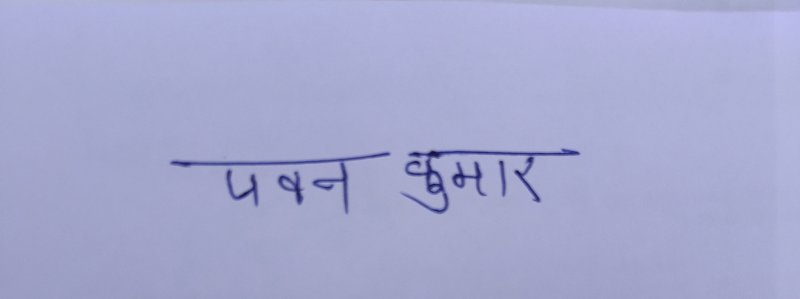 पवन कुमार